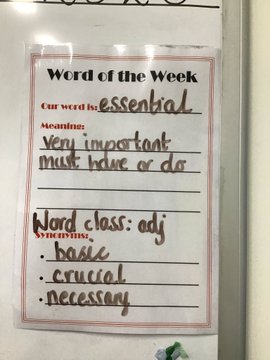 Word of the Week
Our word is: essential
Meaning:
very important
must have or do
Word class: adj
Synonyms:
• basic
• crucial
• necessary